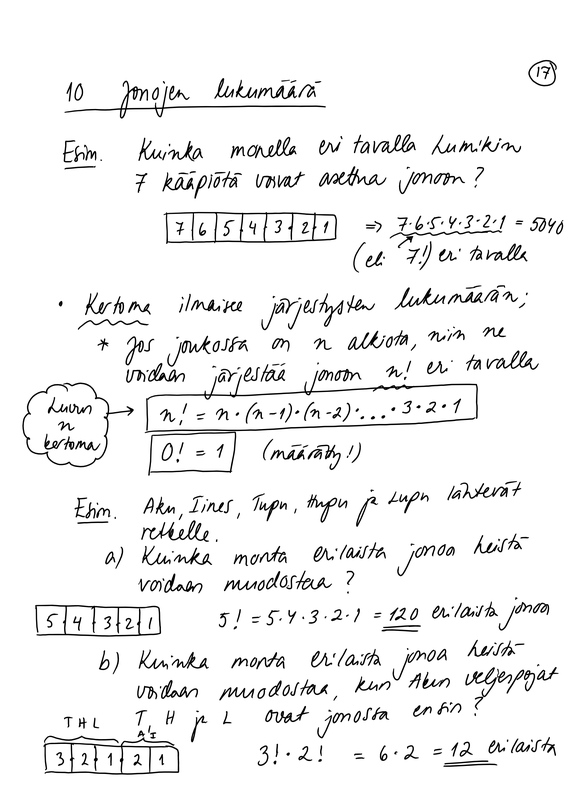 17
10 Jonojen lukumäärä
Esim. Kuinka monella eri tavalla Lumikin
7 kääpiötä voivat asettua jonoon?
7 6 5 4 3 2 1 => 7·6·5·4·3·2·1 = 5040
(eli 7!) eri tavalla
• Kertoma ilmaisee järjestysten lukumäärän;
* Jos joukossa on n alkiota, niin ne
voidaan järjestää jonoon n! eri tavalla
Luvun
n
kertoma
n! = n·(n-1)·(n-2)·...·3·2·1
0! = 1 (määrätty!)
Esim. Aku, Iines, Tupu, Hupu ja Lupu lähtevät
retkelle.
a) Kuinka monta erilaista jonoa heistä
voidaan muodostaa?
5 4 3 2 1 5! = 5·4·3·2·1 = 120 erilaista jonoa
b) Kuinka monta erilaista jonoa heistä
voidaan muodostaa, kun Akun veljenpojat
T, H ja L ovat jonossa ensin?
T H L A I
3 2 1 2 1 3!·2! = 6·2 = 12 erilaista